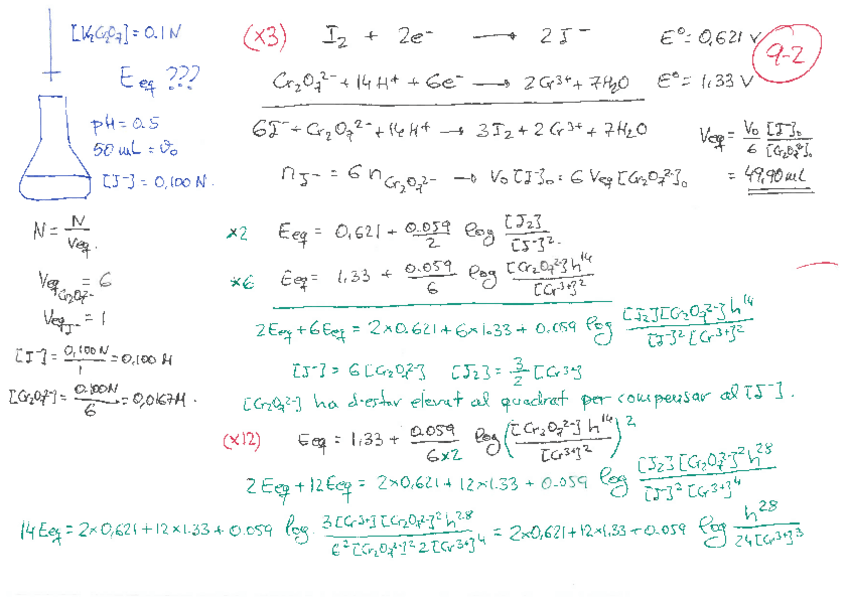 [K2Cr2O7] = 0.1 N
Eeq ???
pH = 0.5
50 mL = v0
[I-] = 0,100 N.
(x3) I2 + 2e- → 2 I- E0 = 0,621 V
9-2
Cr2O7^2- + 14H+ + 6e- → 2Cr3+ + 7H2O E0 = 1,33 V
6I- + Cr2O7^2- + 14H+ → 3I2 + 2Cr3+ + 7H2O
Veq = V0 [I-]0 / 6 [Cr2O7^2-]0
nI- = 6 nCr2O7^2- → V0 [I-]0 = 6 Veq [Cr2O7^2-]0 = 49,90 mL
N = N / Veq.
Veq Cr2O7^2- = 6
Veq I- = 1
[I-] = 0,100N / 1 = 0,100 M
[Cr2O7^2-] = 0.100N / 6 = 0,0167M.
x2 Eeq = 0,621 + 0.059/2 log [I2]/[I-]^2.
x6 Eeq = 1,33 + 0.059/6 log [Cr2O7^2-]h^14/[Cr3+]^2
2Eeq + 6Eeq = 2x0.621 + 6x1.33 + 0.059 log [I2][Cr2O7^2-]h^14/[I-]^2[Cr3+]^2
[I-] = 6[Cr2O7^2-] [I2] = 3/2 [Cr3+]
[Cr2O7^2-] ha d'estar elevat al quadrat per compensar al [I-].
(x12) Eeq = 1,33 + 0.059/6x2 log ([Cr2O7^2-]h^14/[Cr3+]^2)^2
2Eeq + 12Eeq = 2x0,621 + 12x1.33 + 0.059 log [I2][Cr2O7^2-]^2h^28/[I-]^2[Cr3+]^4
14Eeq = 2x0,621 + 12x1.33 + 0.059 log 3[Cr3+][Cr2O7^2-]^2h^28/6^2[Cr2O7^2-]^2 2[Cr3+]^4 = 2x0,621 + 12x1.33 + 0.059 log h^28/24[Cr3+]^3